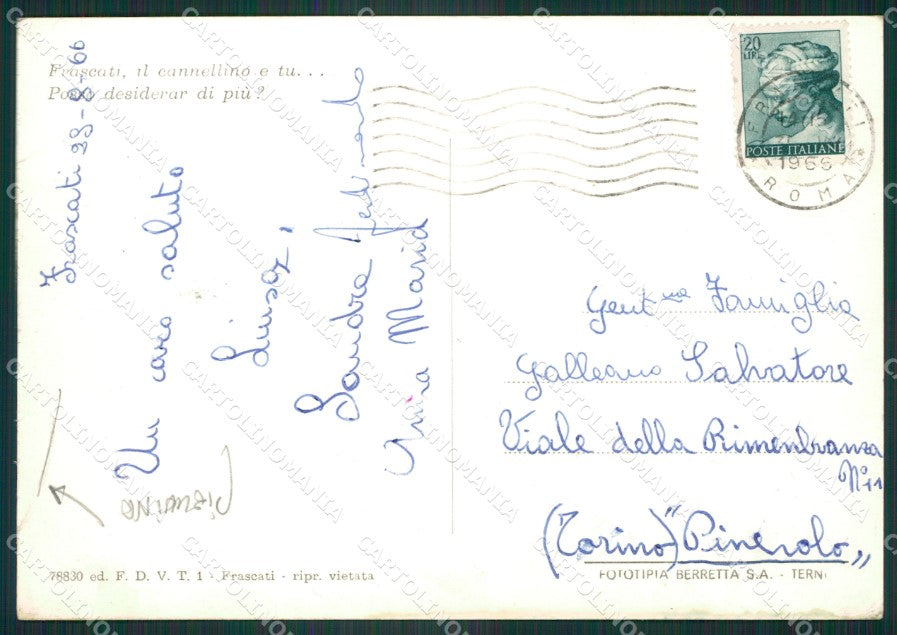 Frascati, il cannellino e tu...
Posso desiderar di più?
Frascati 29-8-66
Un caro saluto
Luisa,
Sandra
Anna Maria
20
LIRE
POSTE ITALIANE
1966
ROMA
Gent.ma Famiglia
Galleano Salvatore
Viale della Rimenbranza
N°11
(Torino) "Pinerolo„
78830 ed. F. D. V. T. 1 - Frascati - ripr. vietata
FOTOTIPIA BERRETTA S.A. - TERNI
CARTOLINOMANIA